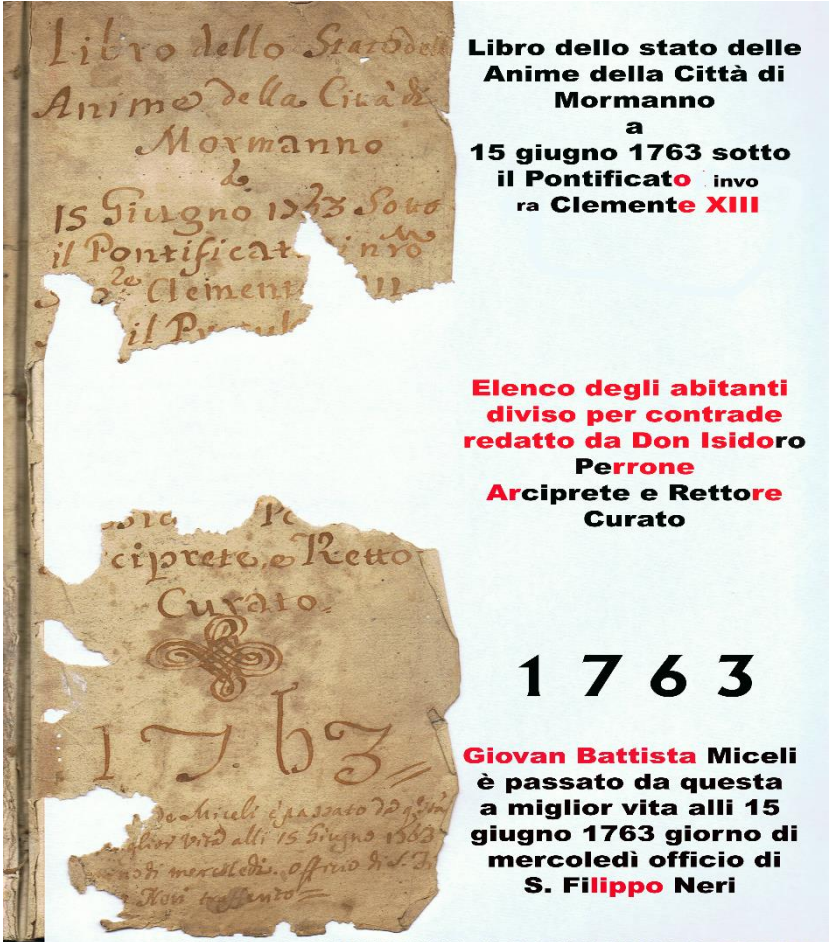 Libro dello Stato dell
Anime della Città di
Mormanno
à
15 Giugno 1763 Sotto
il Pontificat
Clement
il
ciprete, e Retto
Curato.
1763
de Miceli è passato da
glior vita alli 15 Giugno 1763
di mercoledì. officio di S.
Neri
Libro dello stato delle
Anime della Città di
Mormanno
a
15 giugno 1763 sotto
il Pontificato invo
ra Clemente XIII
Elenco degli abitanti
diviso per contrade
redatto da Don Isidoro
Perrone
Arciprete e Rettore
Curato
1763
Giovan Battista Miceli
è passato da questa
a miglior vita alli 15
giugno 1763 giorno di
mercoledì officio di
S. Filippo Neri